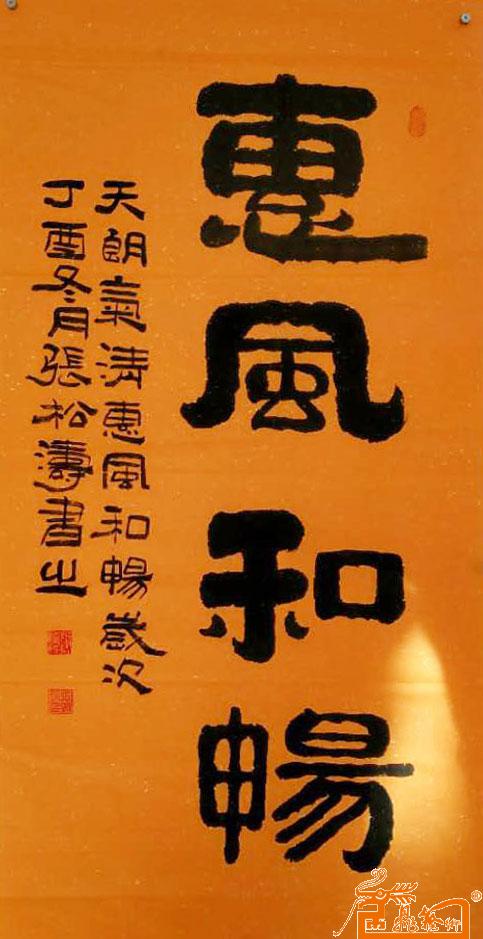 惠風和暢
天朗氣清惠風和暢歲次
丁酉冬月張松濤書之